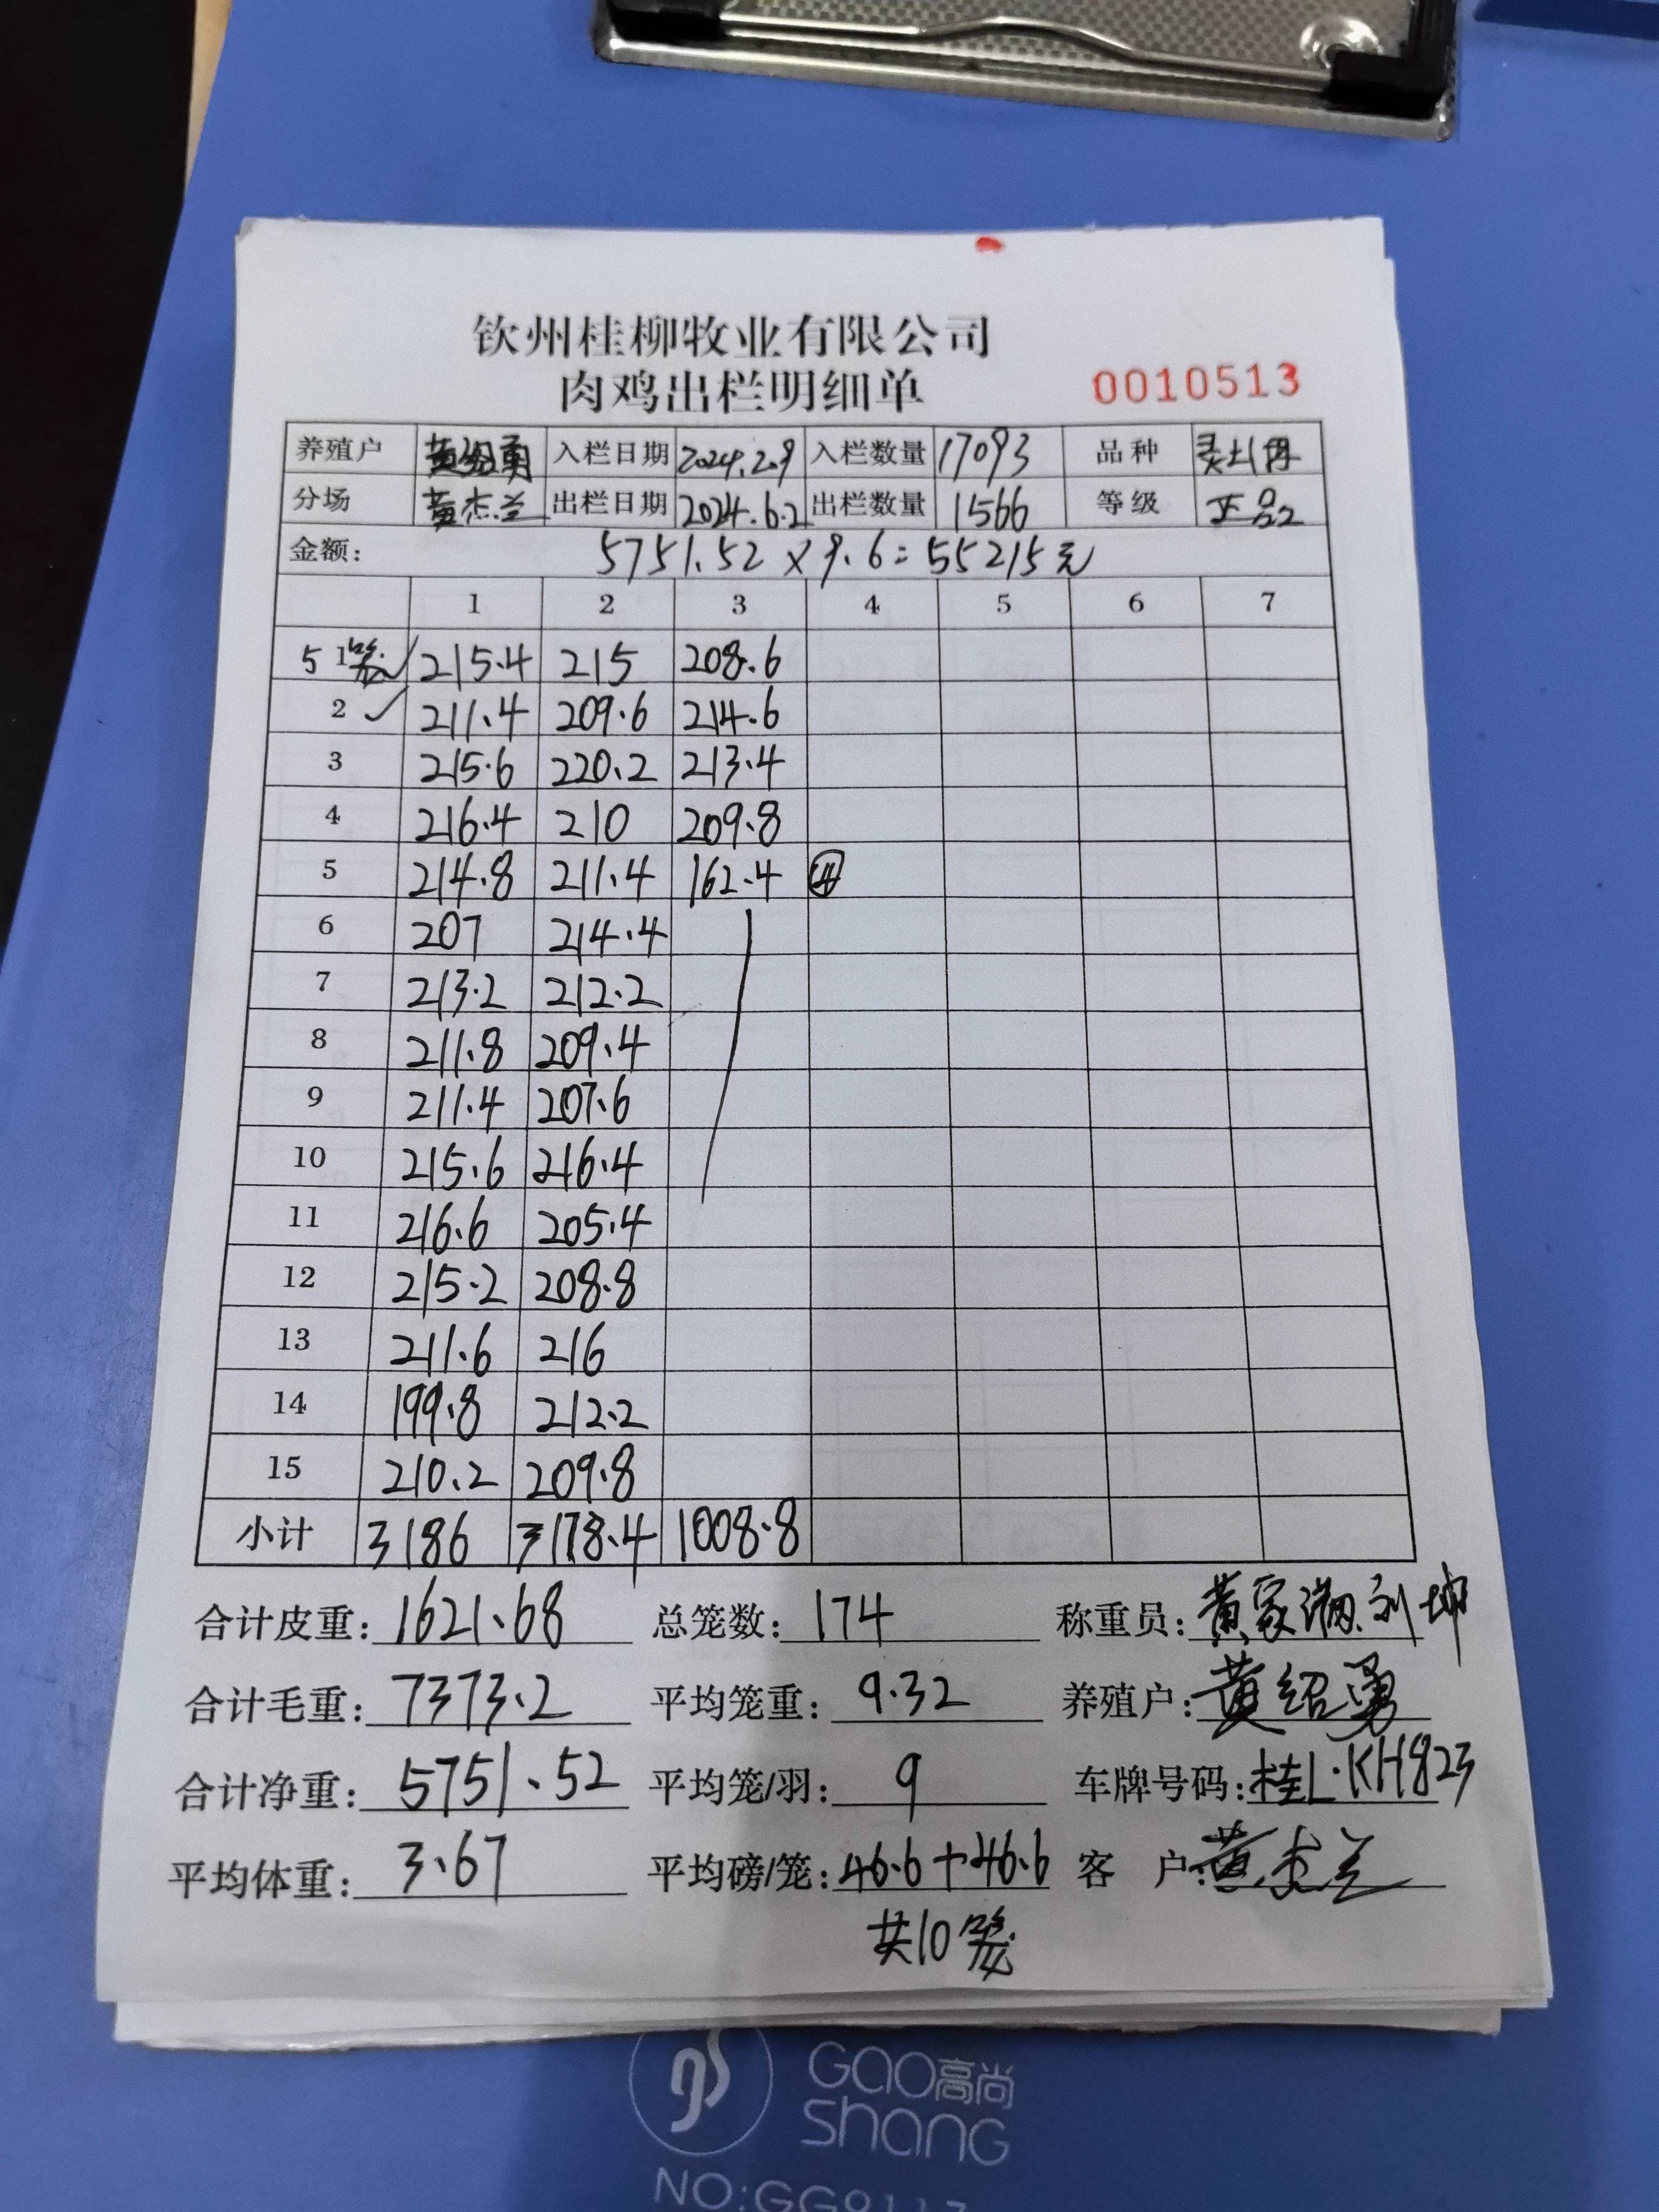 钦州桂柳牧业有限公司
肉鸡出栏明细单 0010513
养殖户 黄绍勇 入栏日期 2024.2.9 入栏数量 17093 品种
分场 黄杰兰 出栏日期 2024.6.2 出栏数量 1566 等级 正品2
金额: 5751.52×9.6=55215元
1 2 3 4 5 6 7
5笼 1 215.4 215 208.6
2 211.4 209.6 214.6
3 215.6 220.2 213.4
4 216.4 210 209.8
5 214.8 211.4 162.4 ④
6 207 214.4
7 213.2 212.2
8 211.8 209.4
9 211.4 207.6
10 215.6 216.4
11 216.6 205.4
12 215.2 208.8
13 211.6 216
14 199.8 212.2
15 210.2 209.8
小计 3186 3178.4 1008.8
合计皮重: 1621.68 总笼数: 174 称重员: 黄家满.刘坤
合计毛重: 7373.2 平均笼重: 9.32 养殖户: 黄绍勇
合计净重: 5751.52 平均笼/羽: 9 车牌号码: 桂L·KH823
平均体重: 3.67 平均磅/笼: 46.6+46.6 客户: 黄杰兰
共10笼
GAO高尚
SHANG